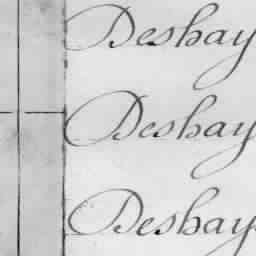 Deshay
Deshay
Deshay